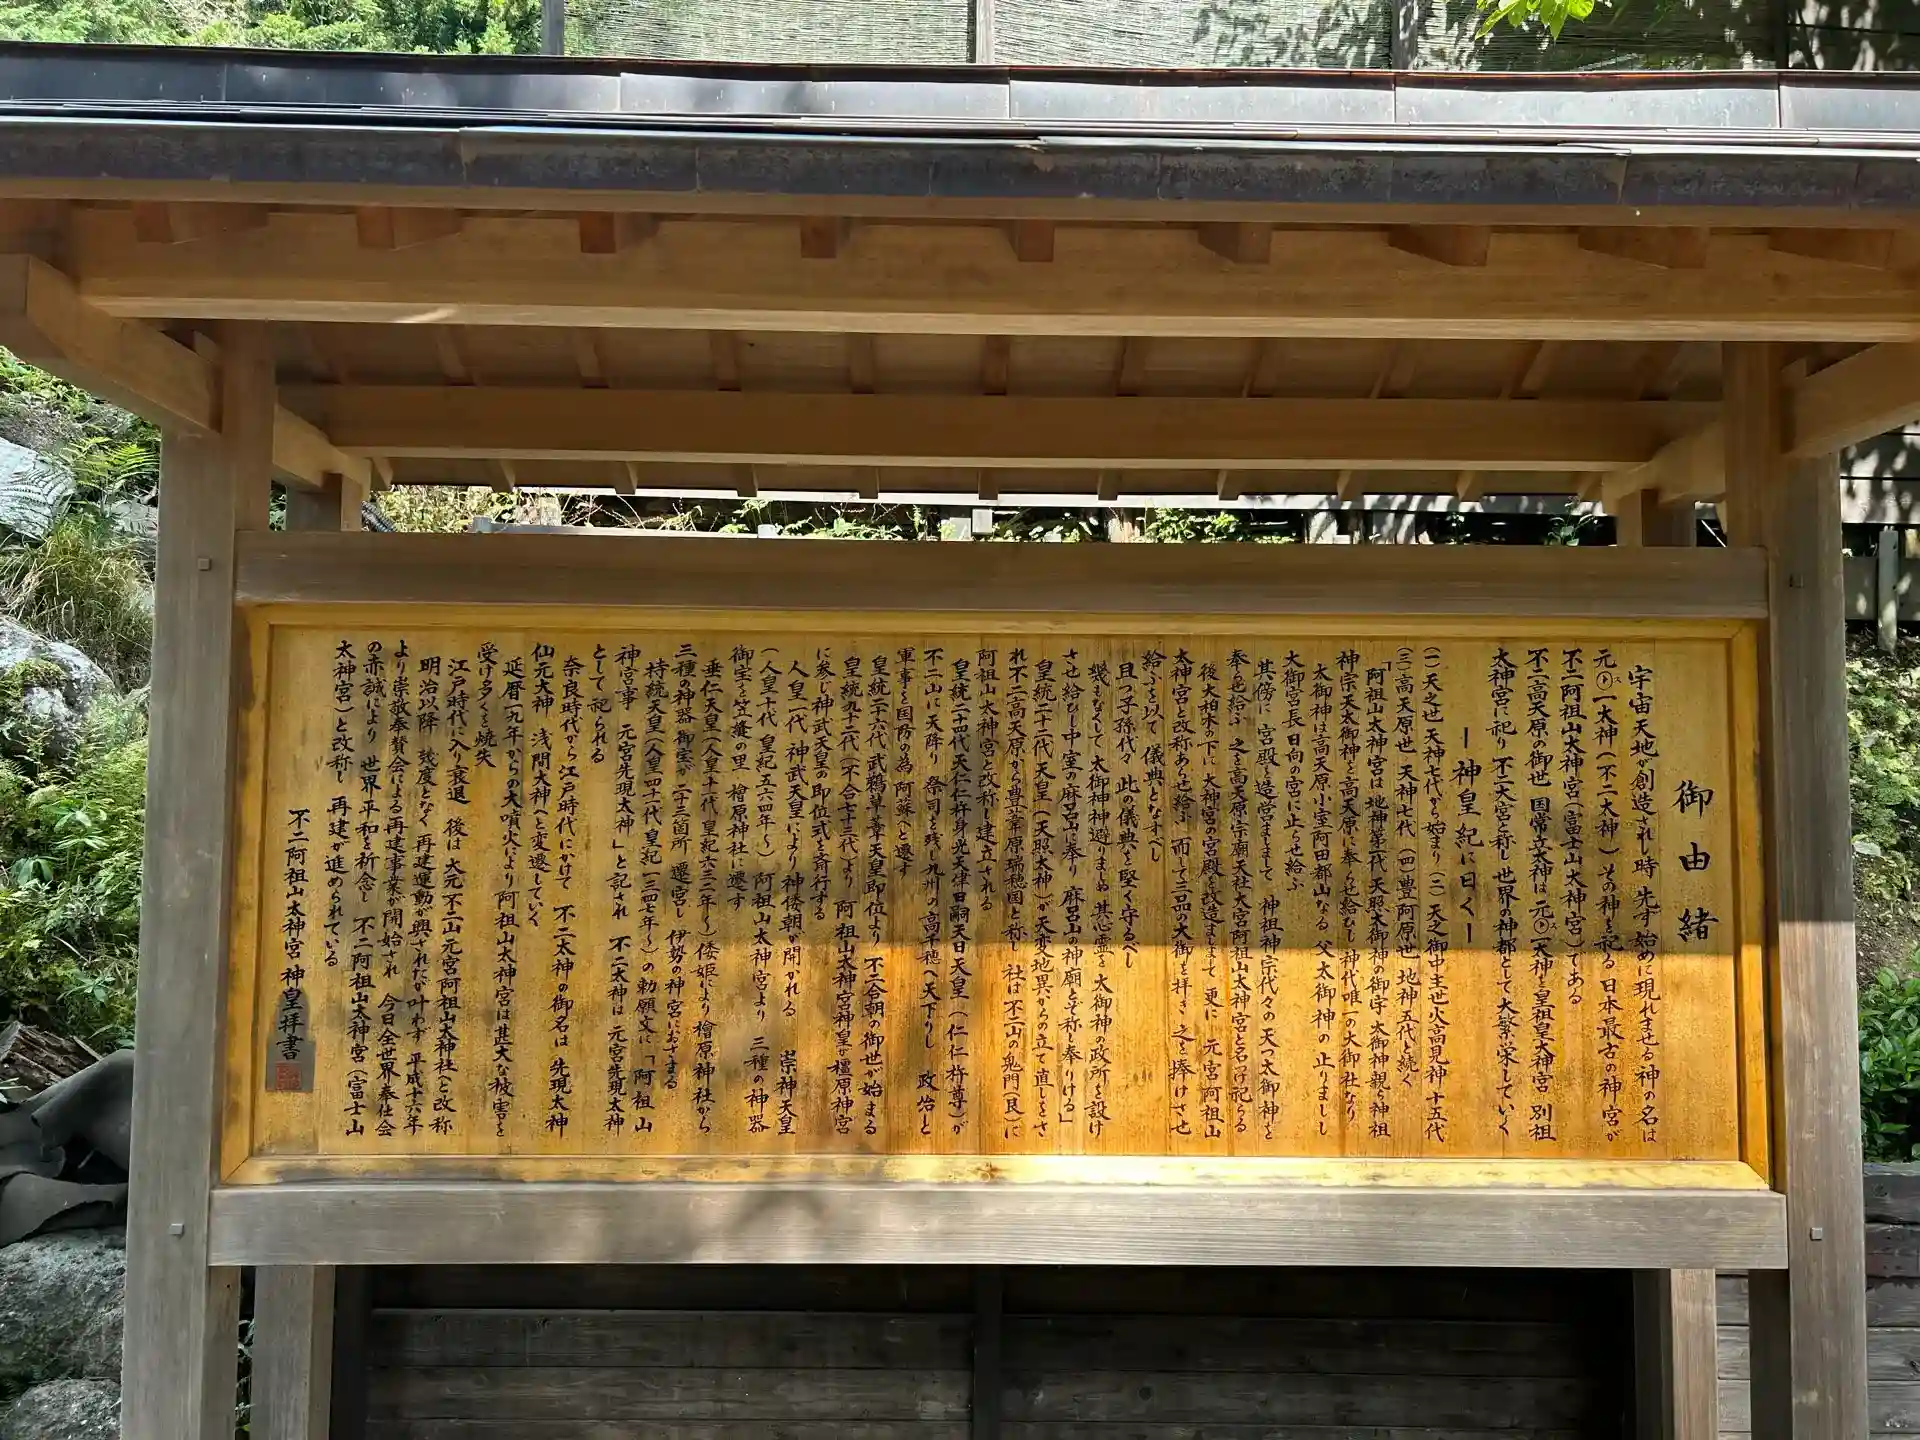 御由緒
宇宙天地が創造されし時 先ず始めに現れませる神の名は
元㋜一大神(不二大神)その神を祀る 日本最古の神宮が
不二阿祖山太神宮(富士山大神宮)である
不二高天原の御世 国常立太神は 元㋜一大神と皇祖皇大神宮 別祖
太神宮に祀り 不二大宮と称し世界の神都として大繁栄していく
ー神皇紀に曰くー
(一)天之世 天神七代から始まり(二)天之御中主世火高見神 十五代
(三)高天原世 天神七代 (四)豊阿原世 地神五代と続く
「阿祖山太神宮は地神第一代天照大御神の御宇 太御神親ら神祖
神宗天太御神を高天原に奉らせ給ひし神代唯一の大御社なり
太御神は高天原小室阿田都山なる 父太御神の止りましし
大御宮長日向の宮に止らせ給ふ
其傍に 宮殿を造営ましまして 神祖神宗代々の 天つ太御神を
奉り給ふ 之を高天原宗廟天社大宮阿祖山太神宮と名牙祀らる
後大柏木の下に 大神宮の宮殿を改造ましまして 更に 元宮阿祖山
太神宮と改称あらせ給ふ 而して三品の大御を拝き 之を捧けさせ
給ふを以て 儀典となすべし
且つ子孫代々 此の儀典を堅く守るべし
幾もなくして 太御神神避りましぬ 其心霊を 大御神の政所を設け
させ給ひし中室の麻呂山に奉り 麻呂山の神廟とぞ称し奉りける」
皇統二十二代天皇(天照太神)が天変地異からの立て直しをさ
れ不二高天原から豊葦原瑞穂国と称し 社は不二山の鬼門(艮)に
阿祖山太神宮と改称し建立される
皇統二十四代天仁仁杵身光天津日嗣天日天皇(仁仁杵尊)が
不二山に天降り 祭司を残し九州の高千穂へ天下りし 政治と
軍事を国防の為阿蘇へと遷す
皇統二六代 武鵜草葺天皇即位より 不二合朝の御世が始まる
皇統九十二代(不合七十三代)より 阿祖山太神宮神皇が橿原神宮
に参じ神武天皇の即位式を斉行する
人皇一代 神武天皇により神倭朝が開かれる 崇神天皇
(人皇十代 皇紀五六四年〜) 阿祖山太神宮より 三種の神器
御宝を笠縫の里 檜原神社に遷す
垂仁天皇(人皇十一代皇紀六三二年〜)倭姫により檜原神社から
三種の神器御宝が二十三箇所 遷宮し 伊勢の神宮におさまる
持統天皇(人皇四十一代皇紀一三四七年〜)の勅願文に「阿祖山
神宮事 元宮先現太神」と記され 不二大神は 元宮先現太神
として祀られる
奈良時代から江戸時代にかけて 不二太神の御名は 先現太神
仙元大神 浅間大神へと変遷していく
延暦一九年からの大噴火により阿祖山太神宮は甚大な被害を
受け多くを焼失
江戸時代に入り衰退 後は 大元不二山元宮阿祖山大神社へと改称
明治以降 幾度となく再建運動が興されたが叶わず 平成十六年
より崇敬奉賛会による再建事業が開始され 今日全世界奉仕会
の赤誠により 世界平和を祈念し 不二阿祖山太神宮(富士山
太神宮)と改称し 再建が進められている
不二阿祖山太神宮 神皇拝書